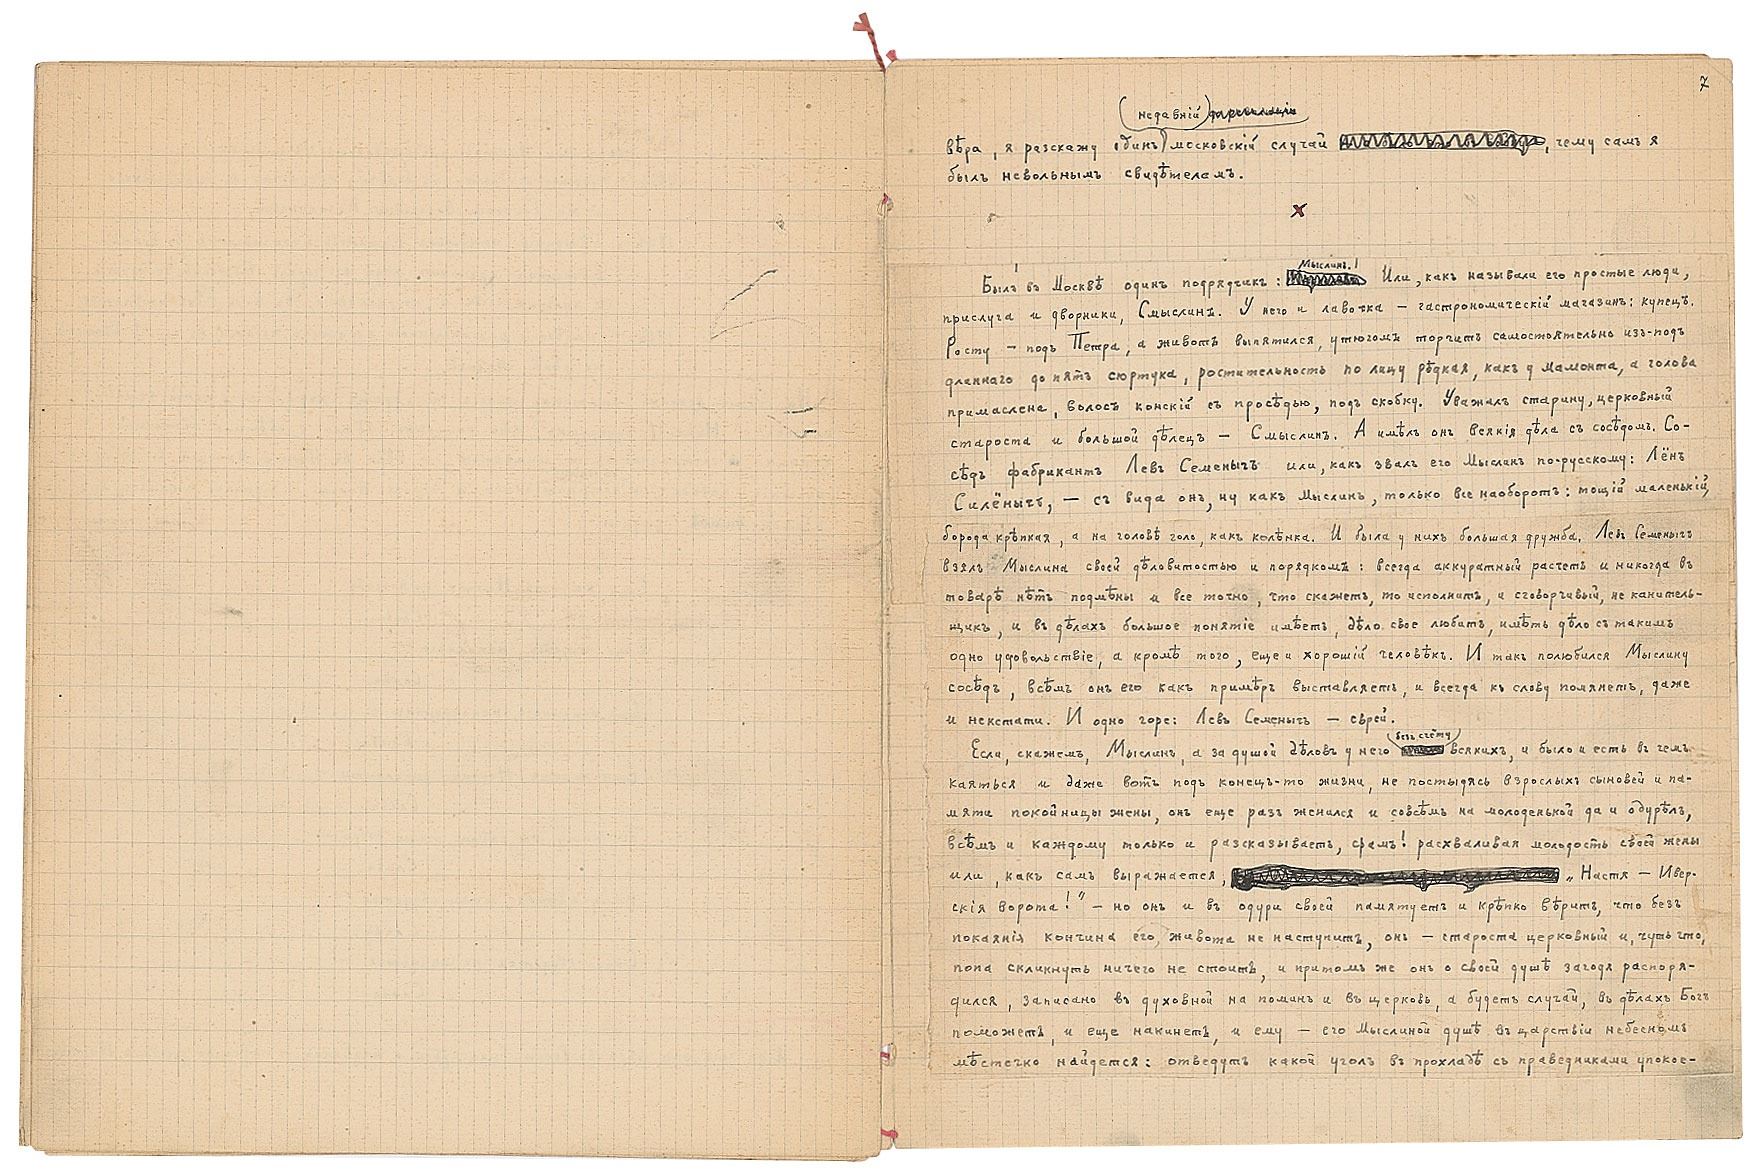 7
(недавній)
вѣра, я разскажу одинъ московскій случай , чему самъ я
былъ невольнымъ свидѣтелемъ.
х
Мыслинъ!
Былъ въ Москвѣ одинъ подрядчикъ: Или, какъ называли его простые люди,
прислуга и дворники, Смыслинъ. У него и лавочка — гастрономическій магазинъ: купецъ.
Росту — подъ Петра, а животъ выпятился, утюгомъ торчитъ самостоятельно изъ-подъ
длиннаго до пятъ сюртука, ростительность по лицу рѣдкая, какъ у мамонта, а голова
примаслена, волосъ конскій съ просѣдью, подъ скобку. Уважалъ старину, церковный
староста и большой дѣлецъ — Смыслинъ. А имѣлъ онъ всякія дѣла съ сосѣдомъ. Со-
сѣдъ фабрикантъ Левъ Семенычъ или, какъ звалъ его Мыслинъ по-русскому: Лёнъ
Силёнычъ, — съ вида онъ, ну какъ Мыслинъ, только все наоборотъ: тощій маленькій,
борода крѣпкая, а на головѣ голо, какъ колѣнка. И была у нихъ большая дружба. Левъ Семенычъ
взялъ Мыслина своей дѣловитостью и порядкомъ: всегда аккуратный расчетъ и никогда въ
товарѣ нѣтъ подмѣны и все точно, что скажетъ, то исполнитъ, и сговорчивый, не канитель-
щикъ, и въ дѣлахъ большое понятіе имѣетъ, дѣло свое любитъ, имѣть дѣло съ такимъ
одно удовольствіе, а кромѣ того, еще и хорошій человѣкъ. И такъ полюбился Мыслину
сосѣдъ, всѣмъ онъ его какъ примѣръ выставляетъ, и всегда къ слову помянетъ, даже
и некстати. И одно горе: Левъ Семенычъ — еврей.
(безъ счёту)
Если, скажемъ, Мыслинъ, а за душой дѣловъ у него всякихъ, и было и есть въ чемъ
каяться и даже вотъ подъ конецъ-то жизни, не постыдясь взрослыхъ сыновей и па-
мяти покойницы жены, онъ еще разъ женился и совсѣмъ на молоденькой да и одурѣлъ,
всѣмъ и каждому только и разсказываетъ, срамъ! расхваливая молодость своей жены
или, какъ самъ выражается, „Настя — Ивер-
скія ворота!" — но онъ и въ одури своей памятуетъ и крѣпко вѣритъ, что безъ
покаянія кончина его живота не наступитъ, онъ — староста церковный и, чуть что,
попа скликнуть ничего не стоитъ, и притомъ же онъ о своей душѣ загодя распоря-
дился, записано въ духовной на поминъ и въ церковь, а будетъ случай, въ дѣлахъ Богъ
поможетъ, и еще накинетъ, и ему — его Мыслиной душѣ въ царствіи небесномъ
мѣстечко найдется: отведутъ какой уголъ въ прохладѣ съ праведниками упокое-